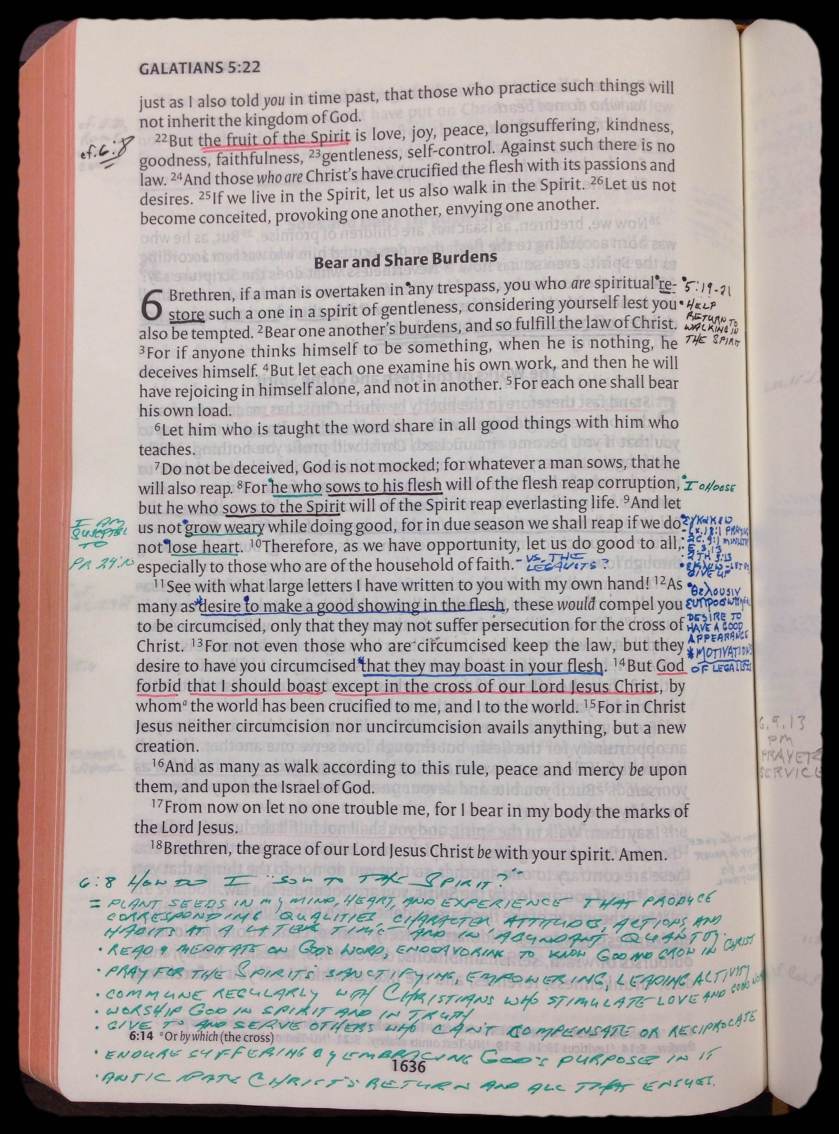 GALATIANS 5:22
just as I also told you in time past, that those who practice such things will
not inherit the kingdom of God.
22But the fruit of the Spirit is love, joy, peace, longsuffering, kindness,
cf. 6:8
goodness, faithfulness, 23gentleness, self-control. Against such there is no
law. 24And those who are Christ's have crucified the flesh with its passions and
desires. 25If we live in the Spirit, let us also walk in the Spirit. 26Let us not
become conceited, provoking one another, envying one another.
Bear and Share Burdens
6 Brethren, if a man is overtaken in any trespass, you who are spiritual re-
store such a one in a spirit of gentleness, considering yourself lest you
also be tempted. 2Bear one another's burdens, and so fulfill the law of Christ.
3For if anyone thinks himself to be something, when he is nothing, he
deceives himself. 4But let each one examine his own work, and then he will
have rejoicing in himself alone, and not in another. 5For each one shall bear
his own load.
5:19-21
HELP
RETURN TO
WALKING IN
THE SPIRIT
6Let him who is taught the word share in all good things with him who
teaches.
7Do not be deceived, God is not mocked; for whatever a man sows, that he
will also reap. 8For he who sows to his flesh will of the flesh reap corruption,
but he who sows to the Spirit will of the Spirit reap everlasting life. 9And let
us not grow weary while doing good, for in due season we shall reap if we do
not lose heart. 10Therefore, as we have opportunity, let us do good to all,
especially to those who are of the household of faith.
I CHOOSE
I AM
TO
PR 24:10
VS. THE
LEGALISTS?
GIVE UP
11See with what large letters I have written to you with my own hand! 12As
many as desire to make a good showing in the flesh, these would compel you
to be circumcised, only that they may not suffer persecution for the cross of
Christ. 13For not even those who are circumcised keep the law, but they
desire to have you circumcised that they may boast in your flesh. 14But God
forbid that I should boast except in the cross of our Lord Jesus Christ, by
whoma the world has been crucified to me, and I to the world. 15For in Christ
Jesus neither circumcision nor uncircumcision avails anything, but a new
creation.
DESIRE TO
HAVE A GOOD
APPEARANCE
*MOTIVATION
OF LEGALISTS
16And as many as walk according to this rule, peace and mercy be upon
them, and upon the Israel of God.
6.9.13
PM
PRAYER
SERVICE
17From now on let no one trouble me, for I bear in my body the marks of
the Lord Jesus.
18Brethren, the grace of our Lord Jesus Christ be with your spirit. Amen.
6:8 HOW DO I "SOW TO THE SPIRIT?"
= PLANT SEEDS IN MY MIND, HEART, AND EXPERIENCE THAT PRODUCE
CORRESPONDING QUALITIES, CHARACTER, ATTITUDES, ACTIONS, AND
HABITS AT A LATER TIME AND IN ABUNDANT QUANTITY.
• READ & MEDITATE ON GOD'S WORD, ENDEAVORING TO KNOW GOD AND GROW IN CHRIST
• PRAY FOR THE SPIRIT'S SANCTIFYING, EMPOWERING, LEADING ACTIVITY
• COMMUNE REGULARLY WITH CHRISTIANS WHO STIMULATE LOVE AND GOOD WORKS
• WORSHIP GOD IN SPIRIT AND IN TRUTH
• GIVE TO AND SERVE OTHERS WHO CAN'T COMPENSATE OR RECIPROCATE
6:14 aOr by which (the cross)
• ENDURE SUFFERING BY EMBRACING GOD'S PURPOSE IN IT
1636
• ANTICIPATE CHRIST'S RETURN AND ALL THAT ENSUES.